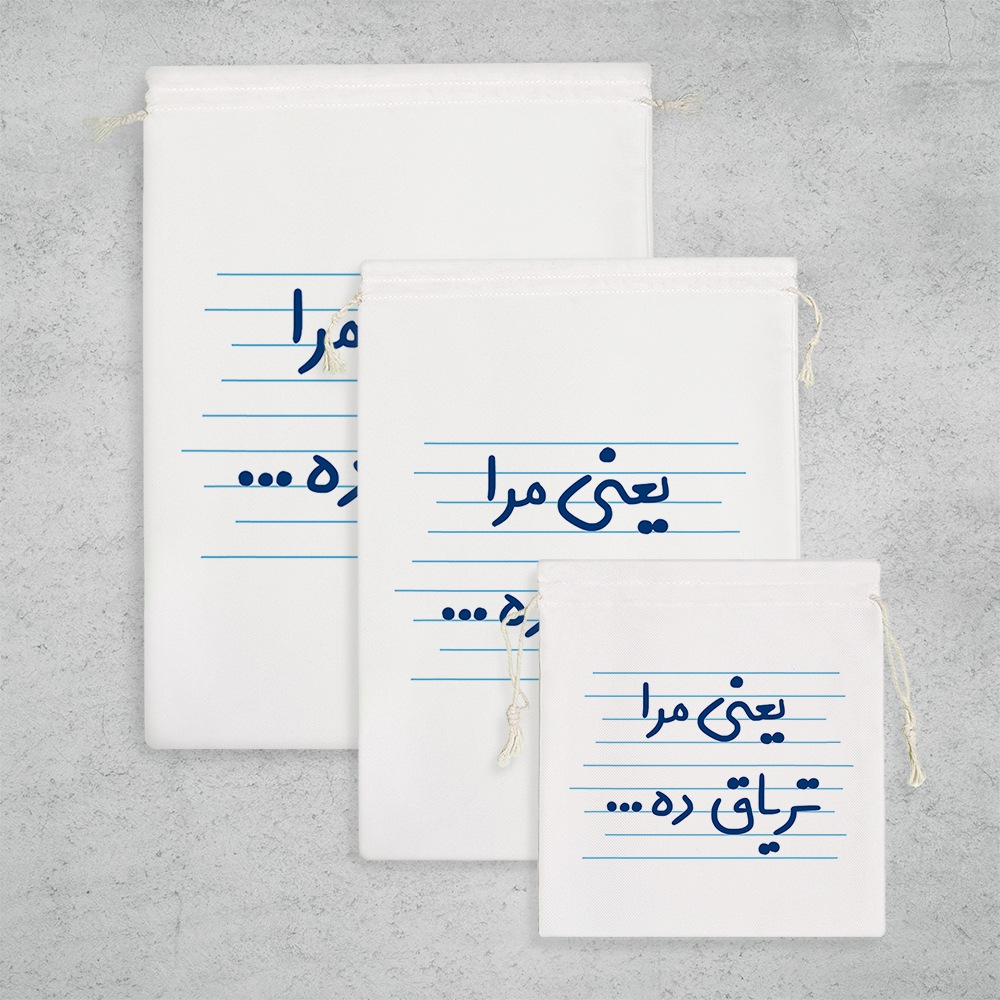 مرا
ده ...
یعنی مرا
ده ...
یعنی مرا
تریاق ده ...